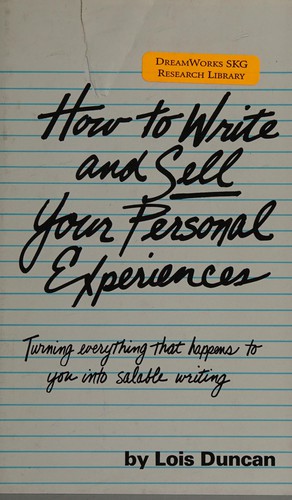 DreamWorks SKG
Research Library
How to Write
and Sell
Your Personal
Experiences
Turning everything that happens to
you into salable writing
by Lois Duncan